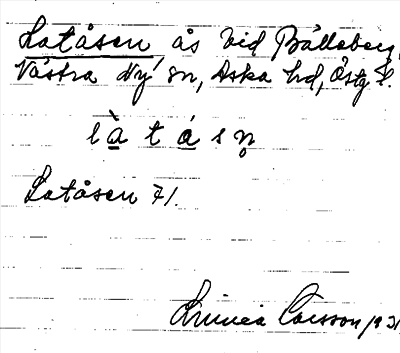 Latåsen ås vid Bålleberg,
Västra Ny sn, Aska hd, Östg l.
l à̲ t á̲ s n̥
Latåsen 71.
Linnea Carsson 1931